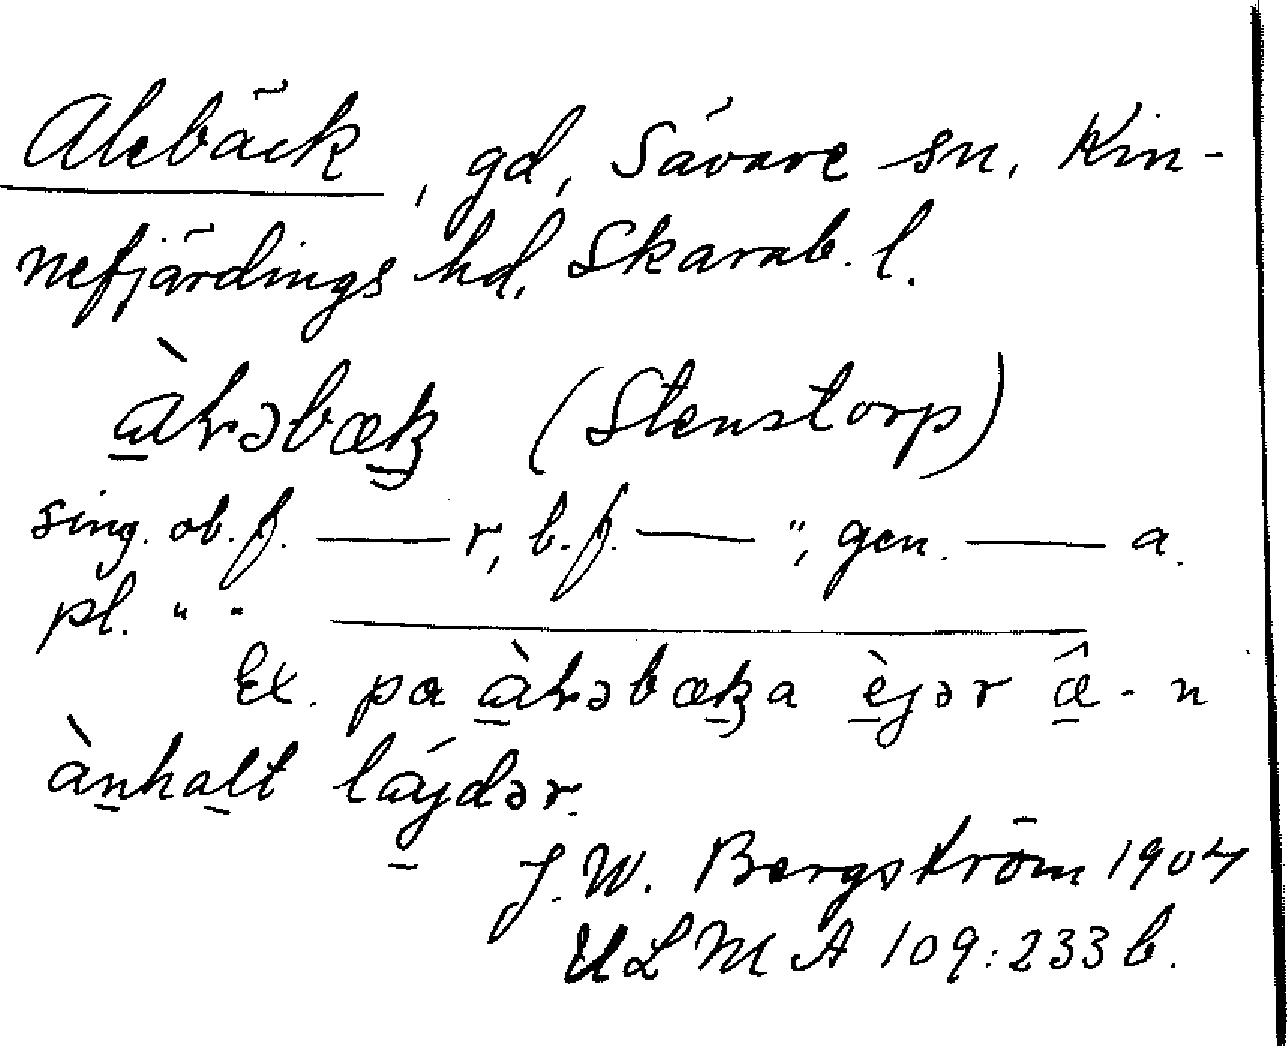 Alebäck, gd, Sävare sn, Kin-
nefjärdings hd, Skarab. l.
(Stenstorp)
sing. ob. f. —— r, b. f. —— ", gen. —— a.
pl. " " ——————
Ex. pa èjər æ̂ - n
ànhalt
J. W. Bergström 1904
ULMA 109:233 b.